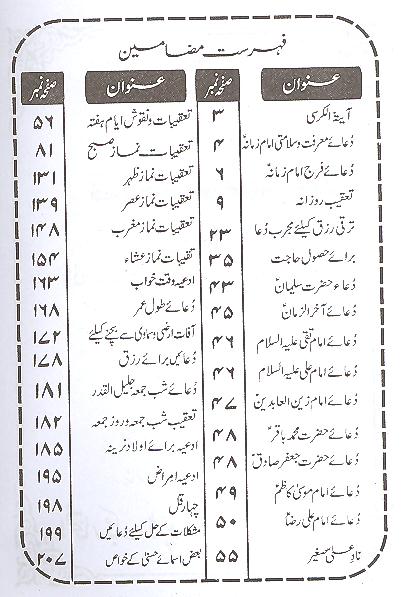 فہرست مضامین
عنوان صفحہ نمبر
آیۃ الکرسی ۳
دُعائے معرفت و سلامتی امام زمانہؑ ۴
دُعائے فرج امام زمانہؑ ۶
تعقیب روزانہ ۹
ترقی رزق کیلئے مجرب دُعا ۲۳
برائے حصول حاجت ۳۵
دُعاء حضرت سلیمانؑ ۴۳
دُعائے آخر الزماںؑ ۴۵
دُعائے امام تقی علیہ السلام ۴۶
دُعائے امام علی علیہ السلام ۴۶
دُعائے امام زین العابدینؑ ۴۷
دُعائے حضرت محمد باقرؑ ۴۸
دُعائے حضرت جعفر صادقؑ ۴۸
دُعائے امام موسیٰ کاظمؑ ۴۹
دُعائے امام علی رضاؑ ۵۰
نادِ علی صغیر ۵۵
عنوان صفحہ نمبر
تعقیبات و نقوش ایام ہفتہ ۵۶
تعقیبات نماز صبح ۸۱
تعقیبات نماز ظہر ۱۳۱
تعقیبات نماز عصر ۱۳۹
تعقیبات نماز مغرب ۱۴۸
تقیبات نماز عشاء ۱۵۴
ادعیہ وقت خواب ۱۶۳
دُعائے طول عمر ۱۶۸
آفات ارضی و سماوی سے بچنے کیلئے ۱۷۲
دُعائیں برائے رزق ۱۷۸
دُعائے شب جمعہ جلیل القدر ۱۸۱
تعقیب شب جمعہ و روز جمعہ ۱۸۲
ادعیہ برائے اولاد نرینہ ۱۸۵
ادعیہ امراض ۱۹۵
چہار قل ۱۹۸
مشکلات کے حل کیلئے دُعائیں ۱۹۹
بعض اسمائے حسنیٰ کے خواص ۲۰۷